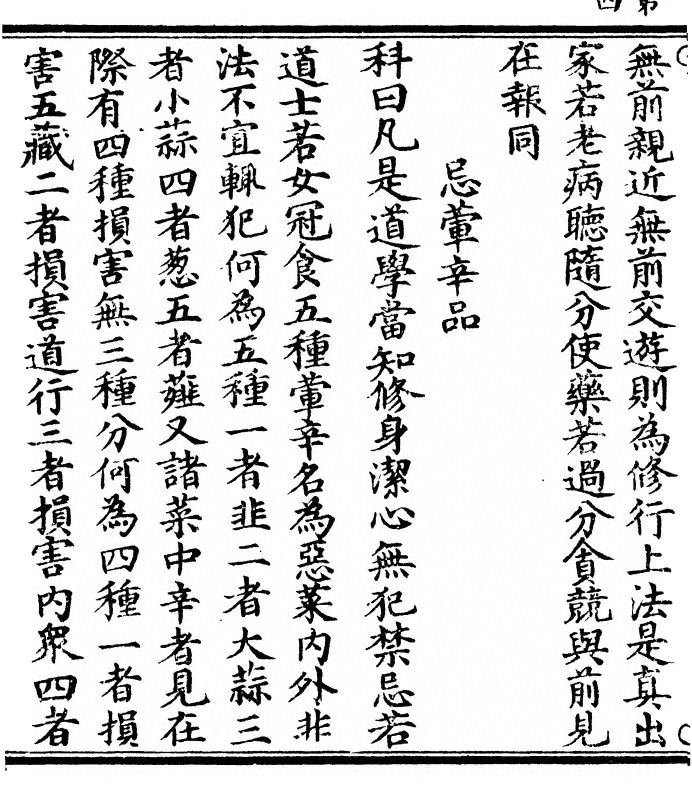 第四
無前親近無前交遊則為修行上法是真出
家若老病聽隨分使藥若過分貪競與前見
在報同
忌葷辛品
科曰凡是道學當知修身潔心無犯禁忌若
道士若女冠食五種葷辛名為惡菜內外非
法不宜輙犯何為五種一者韭二者大蒜三
者小蒜四者葱五者薤又諸菜中辛者見在
際有四種損害無三種分何為四種一者損
害五藏二者損害道行三者損害內眾四者